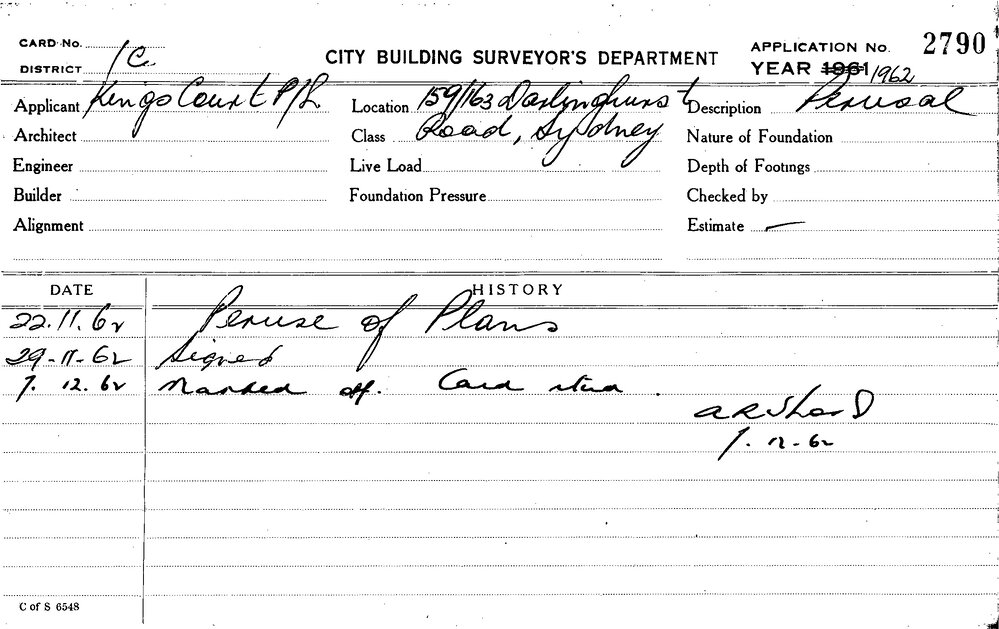 CARD No.
CITY BUILDING SURVEYOR'S DEPARTMENT
APPLICATION No. 2790
DISTRICT 1C.
YEAR 1961 1962
Applicant Kings Court P/L Location 159/163 Darlinghurst Description Perusal
Architect Class Road, Sydney Nature of Foundation
Engineer Live Load Depth of Footings
Builder Foundation Pressure Checked by
Alignment Estimate —
DATE HISTORY
22.11.62 Peruse of Plans
29-11-62 Signed
7. 12. 62 Marked off. Card
7. 12 - 62
C of S 6548